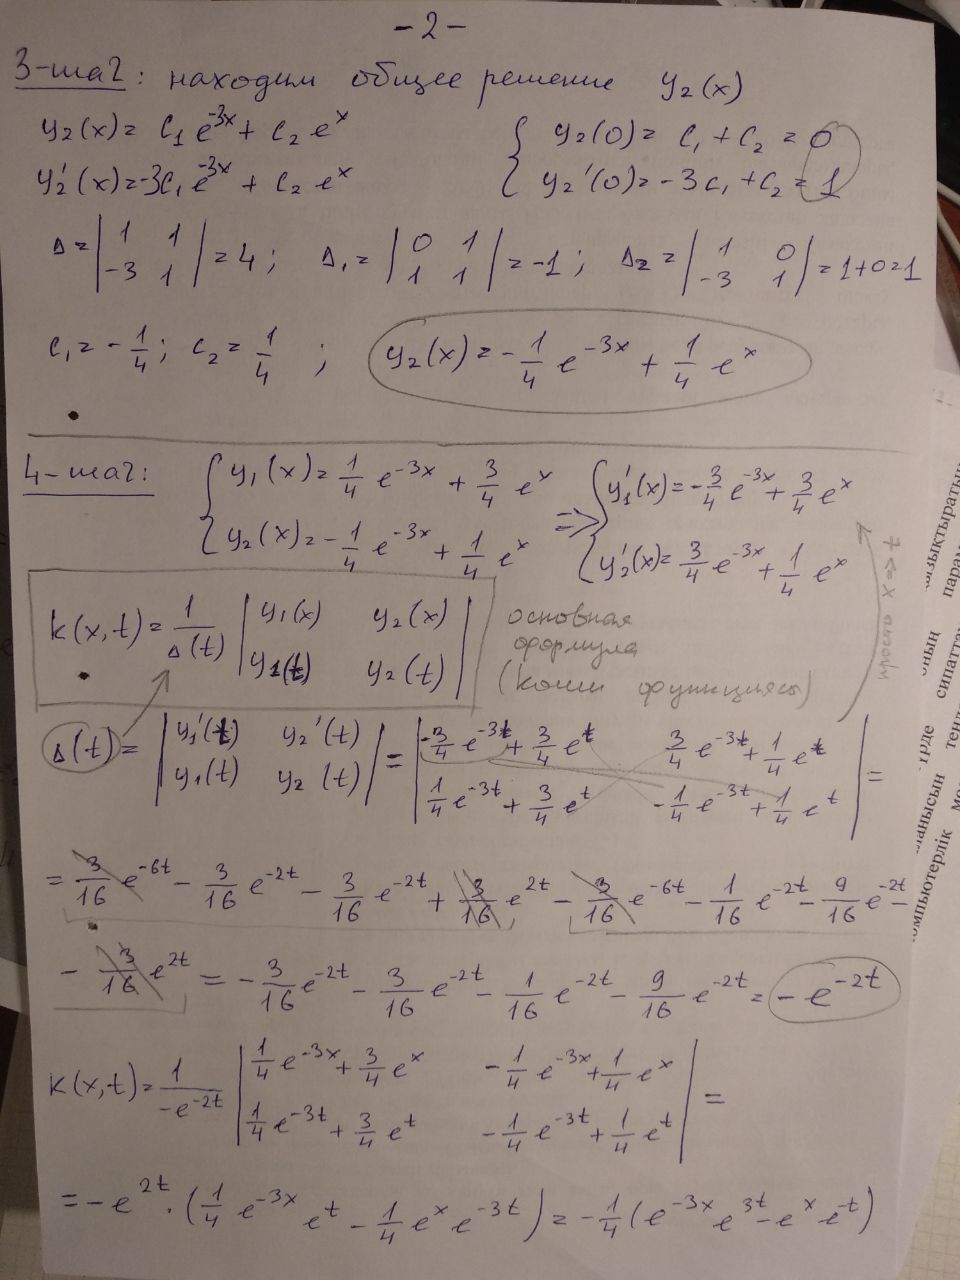 - 2 -
3-шаг: находим общее решение y₂(x)
y₂(x) = C₁e⁻³ˣ + C₂eˣ { y₂(0) = C₁ + C₂ = 0
y₂'(x) = -3C₁e⁻³ˣ + C₂eˣ y₂'(0) = -3C₁ + C₂ = 1
Δ = |1 1; -3 1| = 4; Δ₁ = |0 1; 1 1| = -1; Δ₂ = |1 0; -3 1| = 1+0=1
C₁ = -1/4; C₂ = 1/4; y₂(x) = -1/4 e⁻³ˣ + 1/4 eˣ
4-шаг: { y₁(x) = 1/4 e⁻³ˣ + 3/4 eˣ ⇒ { y₁'(x) = -3/4 e⁻³ˣ + 3/4 eˣ
y₂(x) = -1/4 e⁻³ˣ + 1/4 eˣ y₂'(x) = 3/4 e⁻³ˣ + 1/4 eˣ
K(x,t) = 1/Δ(t) |y₁(x) y₂(x); y₁(t) y₂(t)| основная
формула
(Коши функциясы)
просто x ⇔ t
Δ(t) = |y₁'(t) y₂'(t); y₁(t) y₂(t)| = |-3/4 e⁻³ᵗ + 3/4 eᵗ 3/4 e⁻³ᵗ + 1/4 eᵗ; 1/4 e⁻³ᵗ + 3/4 eᵗ -1/4 e⁻³ᵗ + 1/4 eᵗ| =
= 3/16 e⁻⁶ᵗ - 3/16 e⁻²ᵗ - 3/16 e⁻²ᵗ + 3/16 e²ᵗ - 3/16 e⁻⁶ᵗ - 1/16 e⁻²ᵗ - 9/16 e⁻²ᵗ -
- 3/16 e²ᵗ = -3/16 e⁻²ᵗ - 3/16 e⁻²ᵗ - 1/16 e⁻²ᵗ - 9/16 e⁻²ᵗ = -e⁻²ᵗ
K(x,t) = 1/-e⁻²ᵗ |1/4 e⁻³ˣ + 3/4 eˣ -1/4 e⁻³ˣ + 1/4 eˣ; 1/4 e⁻³ᵗ + 3/4 eᵗ -1/4 e⁻³ᵗ + 1/4 eᵗ| =
= -e²ᵗ · (1/4 e⁻³ˣ eᵗ - 1/4 eˣ e⁻³ᵗ) = -1/4 (e⁻³ˣ e³ᵗ - eˣ e⁻ᵗ)